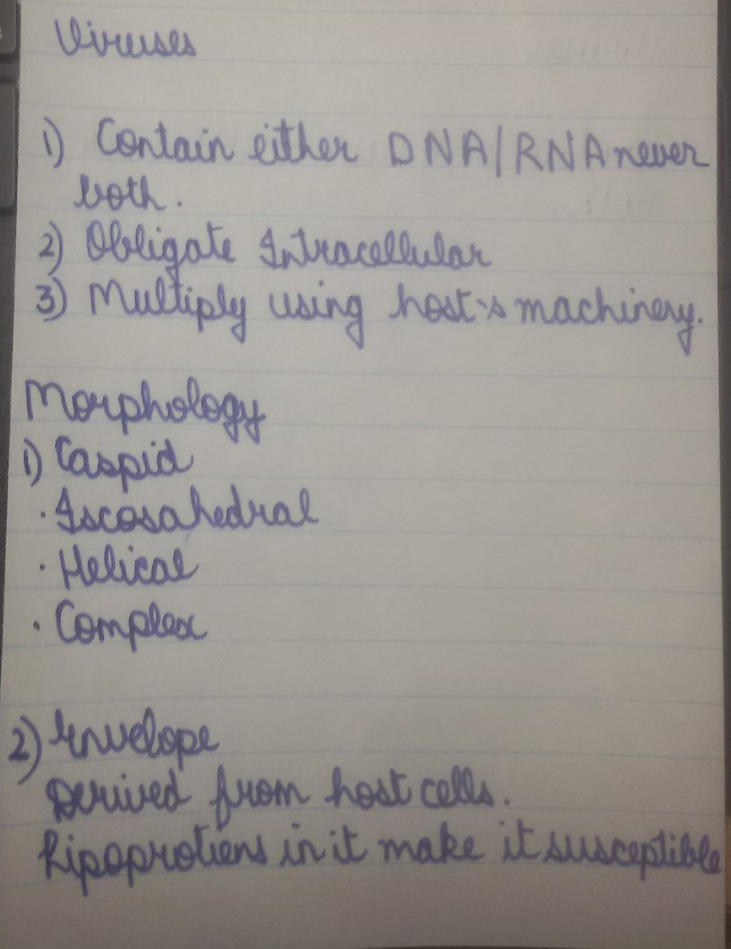 Viruses
1) Contain either DNA/RNA never
both.
2) Obligate Intracellular
3) Multiply using host's machinery.
Morphology
1) Caspid
· Iscosahedral
· Helical
· Complex
2) Envelope
Derived from host cells.
Lipoprotiens in it make it susceptible